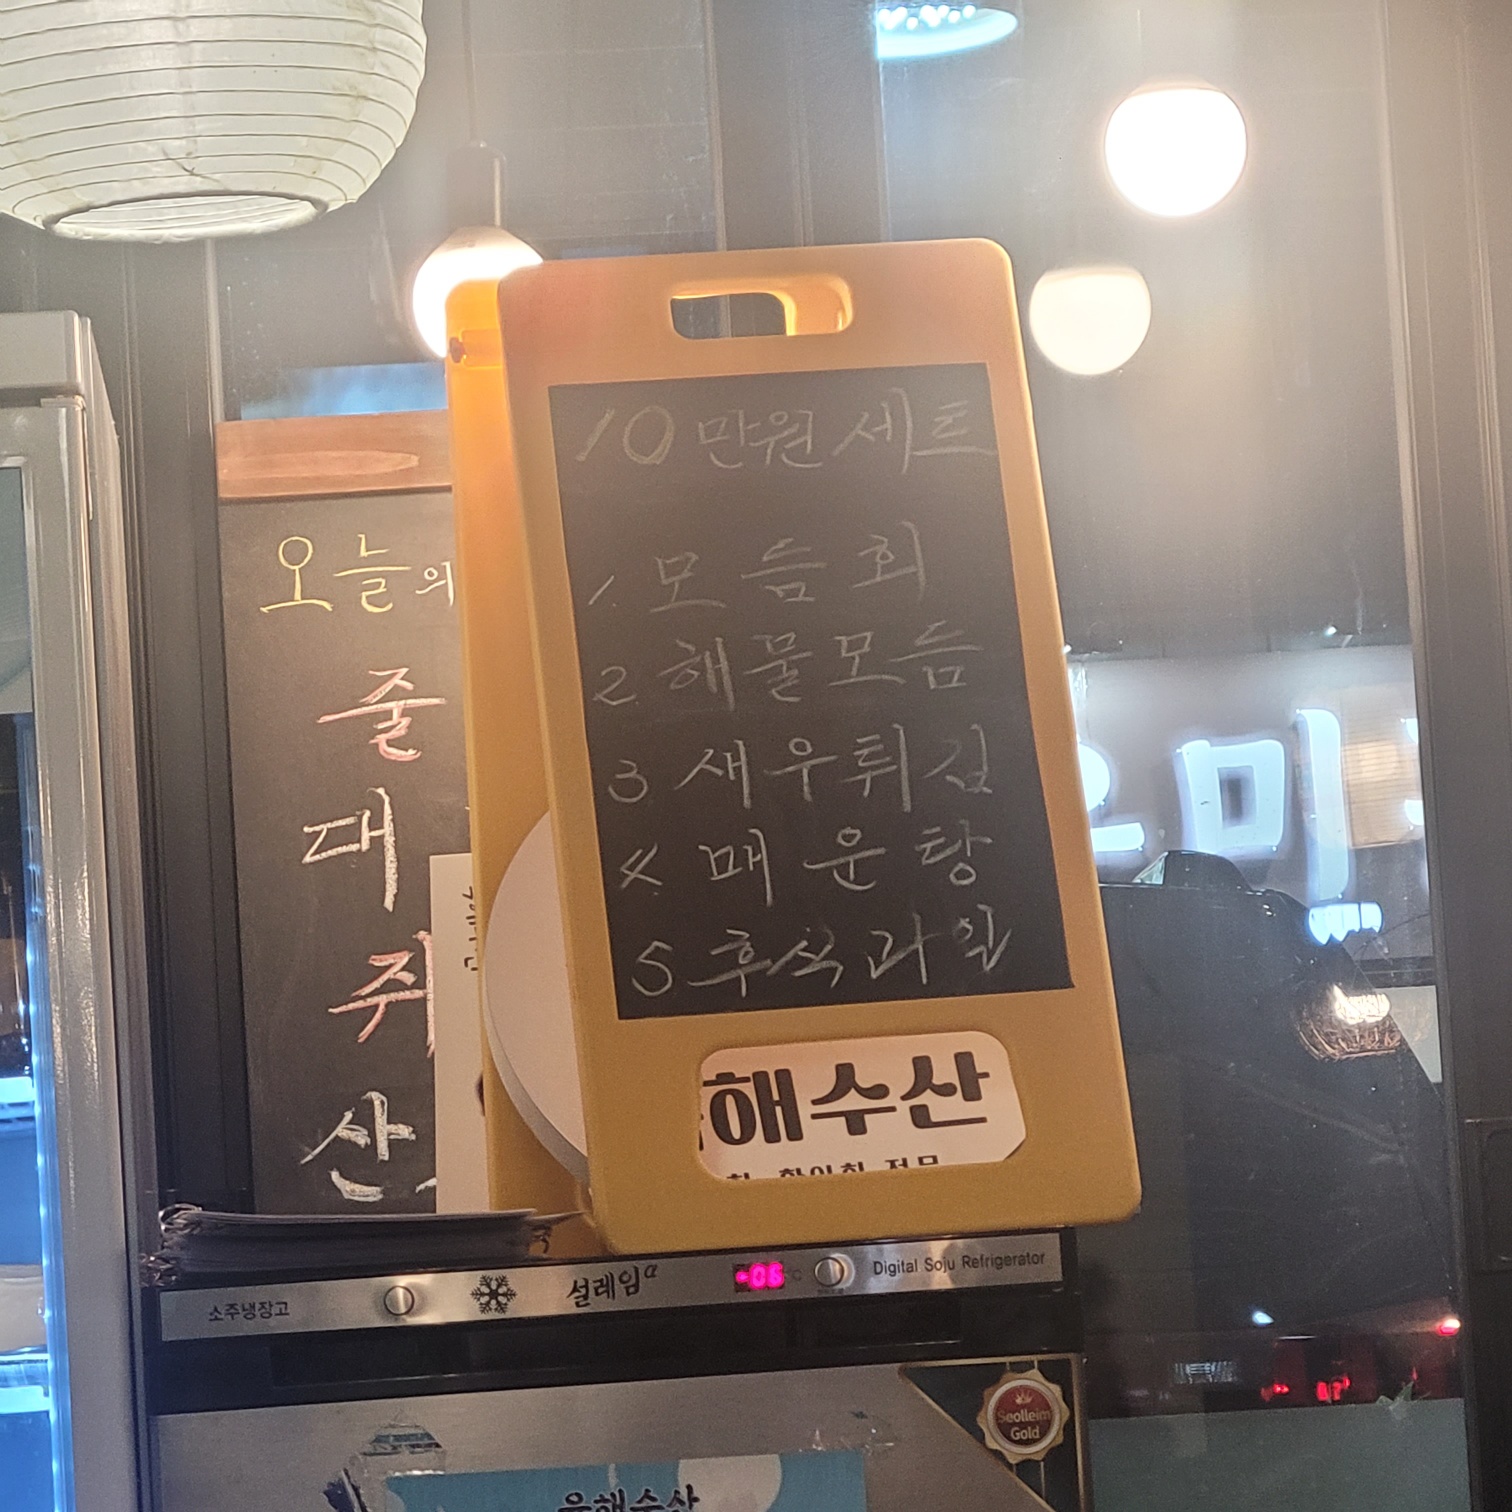 10만원세트
1. 모듬회
2. 해물모듬
3 새우튀김
4 매운탕
5 후식과일
해수산
오늘의
줄
대
쥐
산
소주냉장고
설레임α
-06
Digital Soju Refrigerator
Seolleim
Gold
은해수산
미